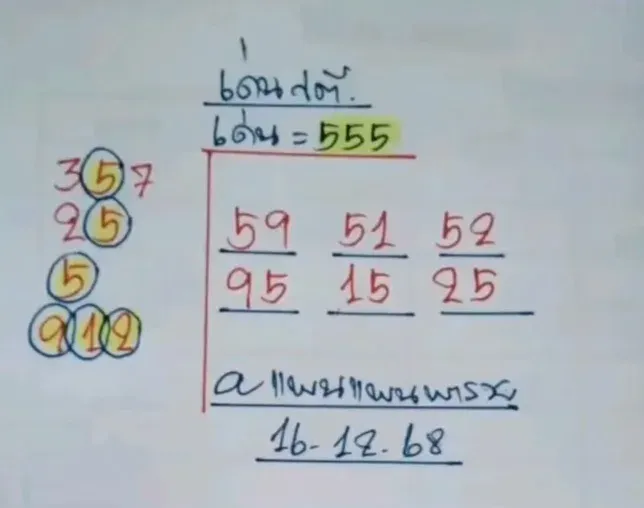 เด่น
เด่น = 555
3 5 7
2 5
5
9 1 2
59 51 52
95 15 25
a แพนแพนพารวย
16-12-68